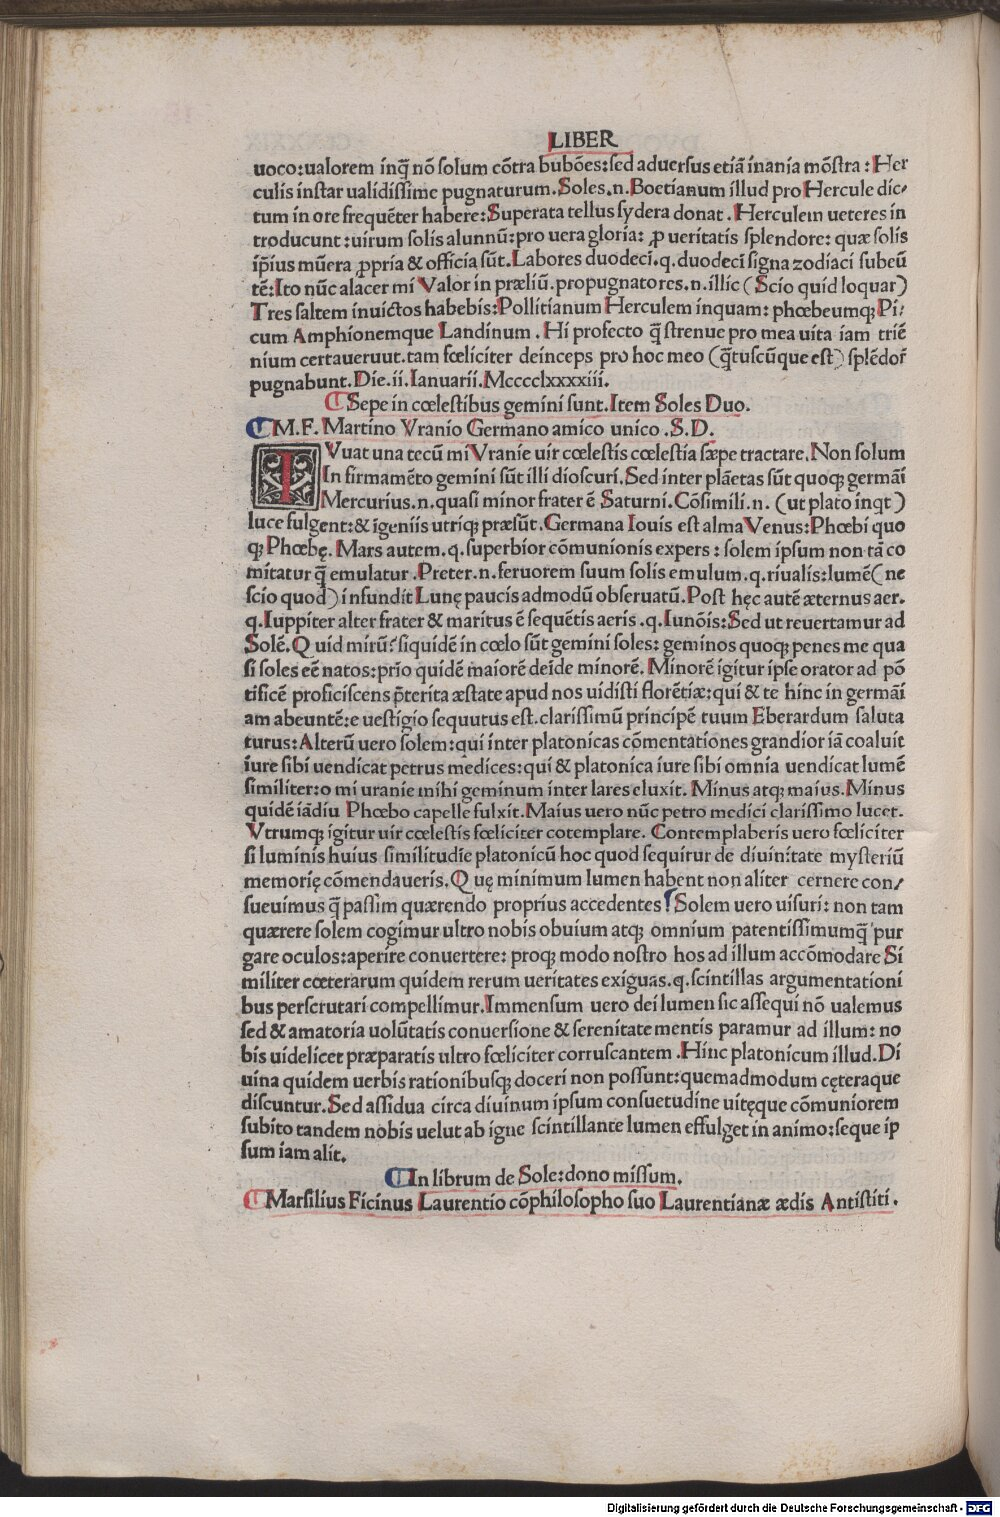 LIBER
uoco:ualorem inq̃ nõ solum cõtra bubões:sed aduersus etiã inania mõstra : Her
culis instar ualidissime pugnaturum.Soles.n.Boetianum illud pro Hercule dic/
tum in ore frequẽter habere:Superata tellus sydera donat . Herculem ueteres in
troducunt :uirum solis alunnũ:pro uera gloria: ꝓ ueritatis splendore: quæ solis
ip̃ius mũera ꝓpria & officia sũt.Labores duodeci.q.duodeci signa zodiaci subeũ
tẽ:Ito nũc alacer mi Valor in præliũ.propugnatores.n.illic (Scio quid loquar)
Tres saltem inuictos habebis:Pollitianum Herculem inquam: phœbeumqꝫ Pi/
cum Amphionemque Landinum . Hi profecto q̃ strenue pro mea uita iam triẽ
nium certaueruut.tam fœliciter deinceps pro hoc meo (q̃tuscũque est) splẽdor̃
pugnabunt.Die.ii.Ianuarii.Mcccclxxxxiii.
¶ Sepe in cœlestibus gemini sunt.Item Soles Duo.
¶ M.F. Martino Vranio Germano amico unico .S.D.
IVuat una tecũ mi Vranie uir cœlestis cœlestia sæpe tractare.Non solum
In firmamẽto gemini sũt illi dioscuri. Sed inter plãetas sũt quoqꝫ germãi
Mercurius.n.quasi minor frater ẽ Saturni.Cõsimili.n. (ut plato inqt )
luce fulgent:& ĩgeniis utriqꝫ præsũt.Germana Iouis est alma Venus:Phœbi quo
qꝫ Phœbę. Mars autem.q.superbior cõmunionis expers : solem ipsum non tã co
mitatur q̃ emulatur .Preter.n.feruorem suum solis emulum.q.riualis:lumẽ(ne
scio quod) infundit Lunę paucis admodũ obseruatũ.Post hęc autẽ æternus aer.
q.Iuppiter alter frater & maritus ẽ sequẽtis aeris .q.Iunõis:Sed ut reuertamur ad
Solẽ.Quid mirũ? siquidẽ in cœlo sũt gemini soles: geminos quoqꝫ penes me qua
si soles eẽ natos:prio quidẽ maiorẽ deĩde minorẽ. Minorẽ igitur ipse orator ad põ
tificẽ proficiscens p̃terita æstate apud nos uidisti florẽtiæ:qui & te hinc in germãi
am abeuntẽ:e uestigio sequutus est.clarissimũ principẽ tuum Eberardum saluta
turus:Alterũ uero solem:qui inter platonicas cõmentationes grandior iã coaluit
iure sibi uendicat petrus medices:qui & platonica iure sibi omnia uendicat lumẽ
similiter:o mi uranie mihi geminum inter lares eluxit. Minus atqꝫ maius.Minus
quidẽ iãdiu Phœbo capelle fulxit.Maius uero nũc petro medici clarissimo lucet.
Vtrumqꝫ igitur uir cœlestis fœliciter cotemplare. Contemplaberis uero fœliciter
si luminis huius similitudĩe platonicũ hoc quod sequitur de diuinitate mysteriũ
memorię cõmendaueris.Quę minimum lumen habent non aliter cernere con/
sueuimus q̃ passim quærendo proprius accedentes Solem uero uisuri: non tam
quærere solem cogimur ultro nobis obuium atqꝫ omnium patentissimumq̃ pur
gare oculos:aperire conuertere: proqꝫ modo nostro hos ad illum accõmodare Si
militer cœterarum quidem rerum ueritates exiguas.q.scintillas argumentationi
bus perscrutari compellimur.Immensum uero dei lumen sic assequi nõ ualemus
sed & amatoria uolũtatis conuersione & serenitate mentis paramur ad illum: no
bis uidelicet præparatis ultro fœliciter corruscantem .Hinc platonicum illud.Di
uina quidem uerbis rationibusqꝫ doceri non possunt:quemadmodum cęteraque
discuntur.Sed assidua circa diuinum ipsum consuetudine uitęque cõmuniorem
subito tandem nobis uelut ab igne scintillante lumen effulget in animo:seque ip
sum iam alit.
¶ In librum de Sole:dono missum.
¶ Marsilius Ficinus Laurentio cõphilosopho suo Laurentianæ ædis Antistiti .
Digitalisierung gefördert durch die Deutsche Forschungsgemeinschaft - DFG